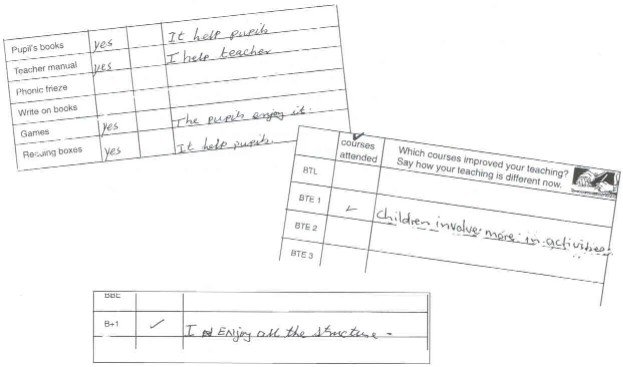 Pupil's books yes It help pupils
Teacher manual yes I help teacher
Phonic frieze
Write on books
Games yes The pupils enjoy it.
Reading boxes yes It help pupils
courses attended Which courses improved your teaching? Say how your teaching is different now.
BTL
BTE 1 ✓ children involve more in activities
BTE 2
BTE 3
BBE
B+1 ✓ I Enjoy all the structure -